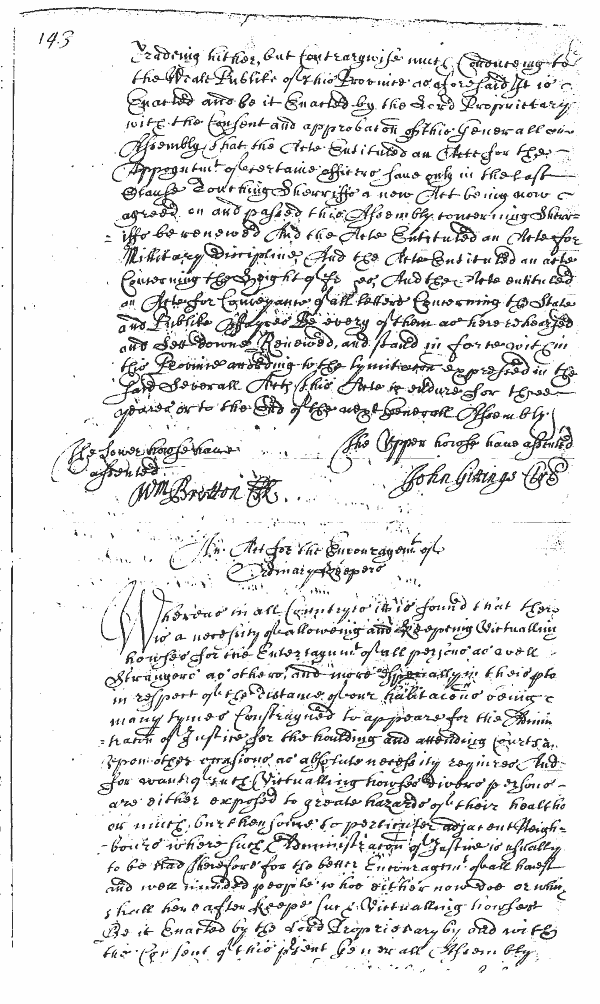 143
Tradeing hither, but Contrarywise much Conduceing to
the Weale Publike of this Province as aforesaid It is
Enacted and be it Enacted by the Lord Proprietary
with the Consent and approbacon of this Generall
Assembly, that the Acte Entituled an Acte for the
Appoyntmt. of certaine officers save only in the last
Clause Touching Sherriffs a new Act being now
agreed on and passed this Assembly concerning Sherr-
iffs be renewed And the Acte Entituled an Acte for
Millitary Discipline, And the Acte Entituled an acte
Concerning the And the Acte entituled
an Acte for Conveyance of all letters Concerning the State
and Publike Affayres Be every of them as here rehearsed
and Sett downe Renewed, and stand in force within
this Province according to the lymitacon expressed in the
said Severall Acts, this Acte to endure for three
yeares or to the End of the next Generall Assembly
The Lower howse have
assented
Wm Bretton Clk.
The Upper howse have assented
John Gittings Clre
An Act for the Encouragemt. of
Ordinary Keepers
Whereas in all Countrys it is found that there
is a necessity of alloweing and Keepeing Victuallin
howses for the Entertaynmt. of all persons as well
Strangers as others, and more especially in this
in respect of the Distance of our habitacons being
many tymes Constrayned to appeare for the Admin
=tracon of Justice for the houlding and attending Courts
upon other occasions as absolute necessity requires And
for want of such Victualling howses divers persons
are either exposed to greate hazards of their healths
or much burthensome to perticuler adjacent Neigh=
-bours where such Administracon of Justice is usually
to be had Therefore for the better Encouragemt. of all honest
and well minded people whoe either now doe or
shall hereafter Keepe such Victualling howses
Be it Enacted by the Lord Proprietary by and with
the Consent of this p'sent Generall Assembly